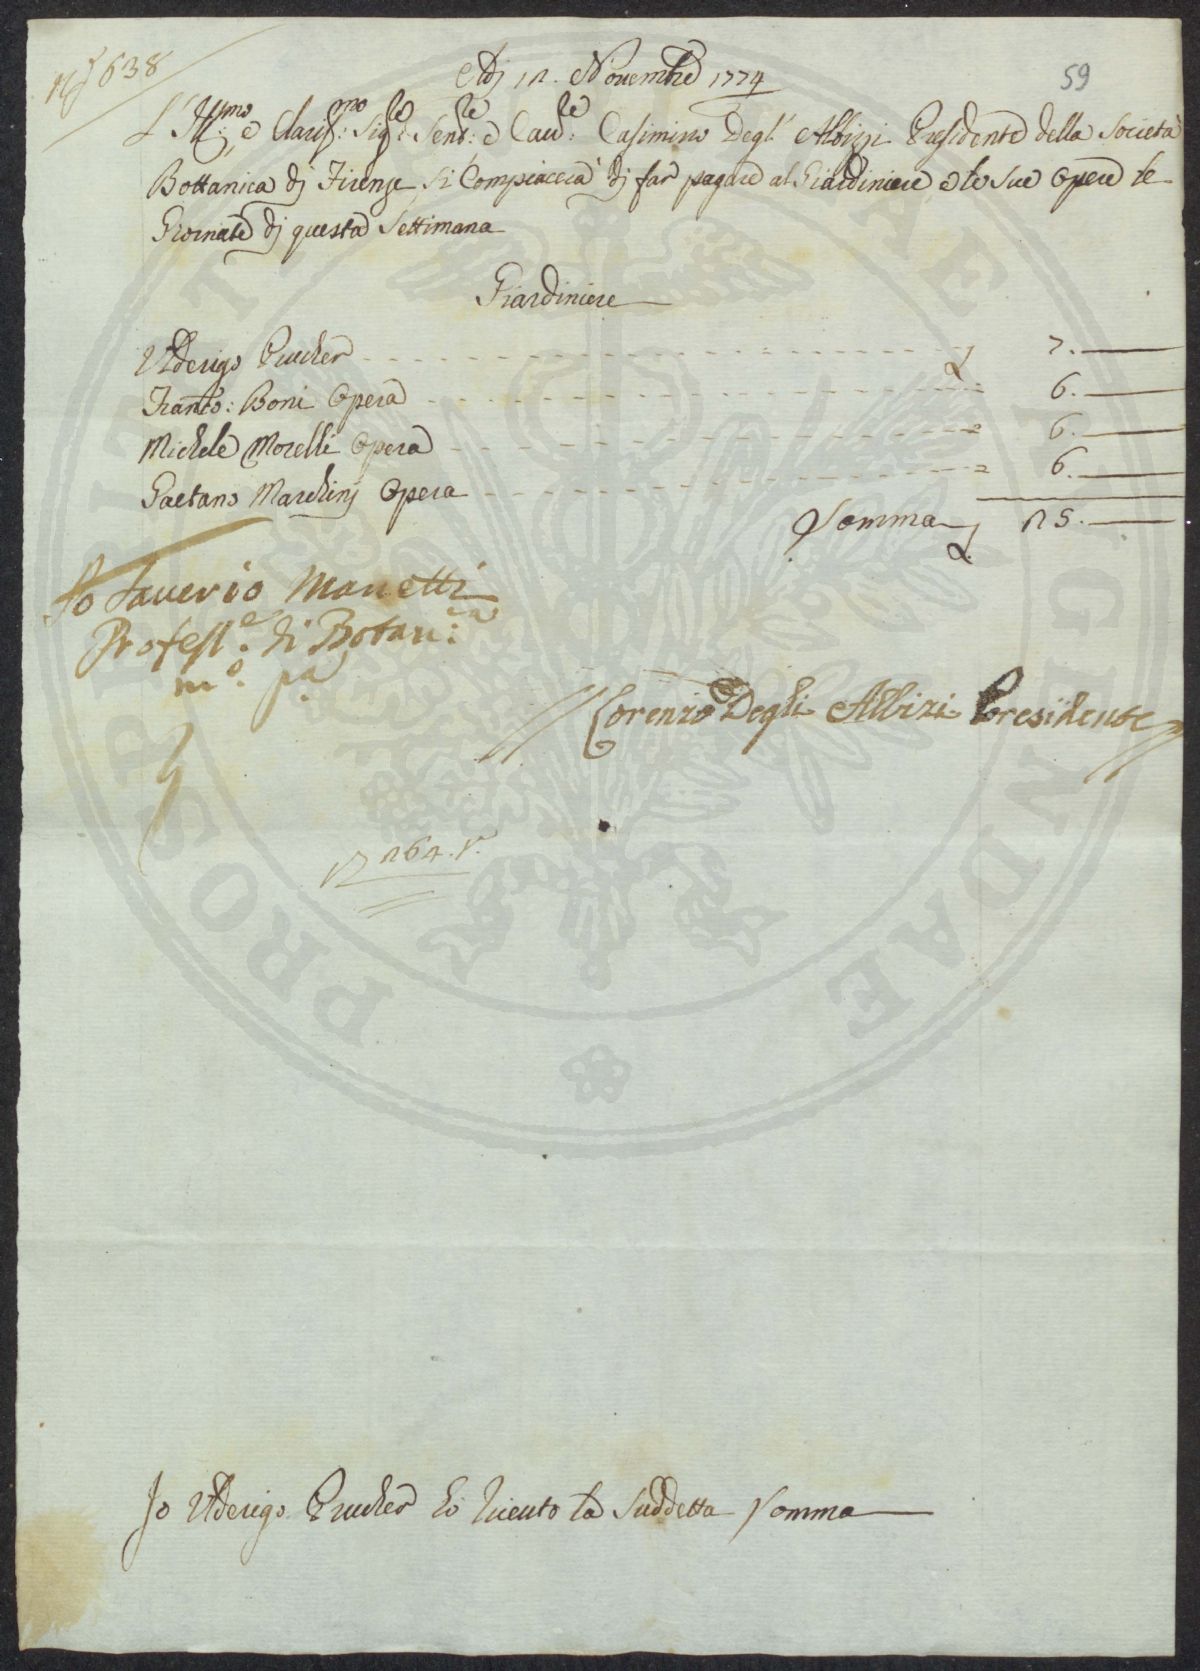 N.° 638
59
Adj 12. Novembre 1774
L' Ill:mo e Claris:mo Sig:re Sen:re e Cau:re Casimirro Degl' Albizzi Presidente della Società
Bottanica dj Firenze Si Compiacerà dj far pagare al Giardiniere e le Sue Opere le
Giornate dj questa Settimana
Giardiniere
Uderigo Prucker 7.
Franco: Boni Opera 6.
Michele Morelli Opera 6.
Gaetano Marchinj Opera 6.
Somma 25.
Io Saverio Manetti
Profess.e di Botan:ca
m.o p.a
Lorenzo Degli Albizi Presidente
264.
Io Uderigo Prucker ho riceuto la Suddetta Somma
PROSPERITATI PUBLICAE AUGENDAE